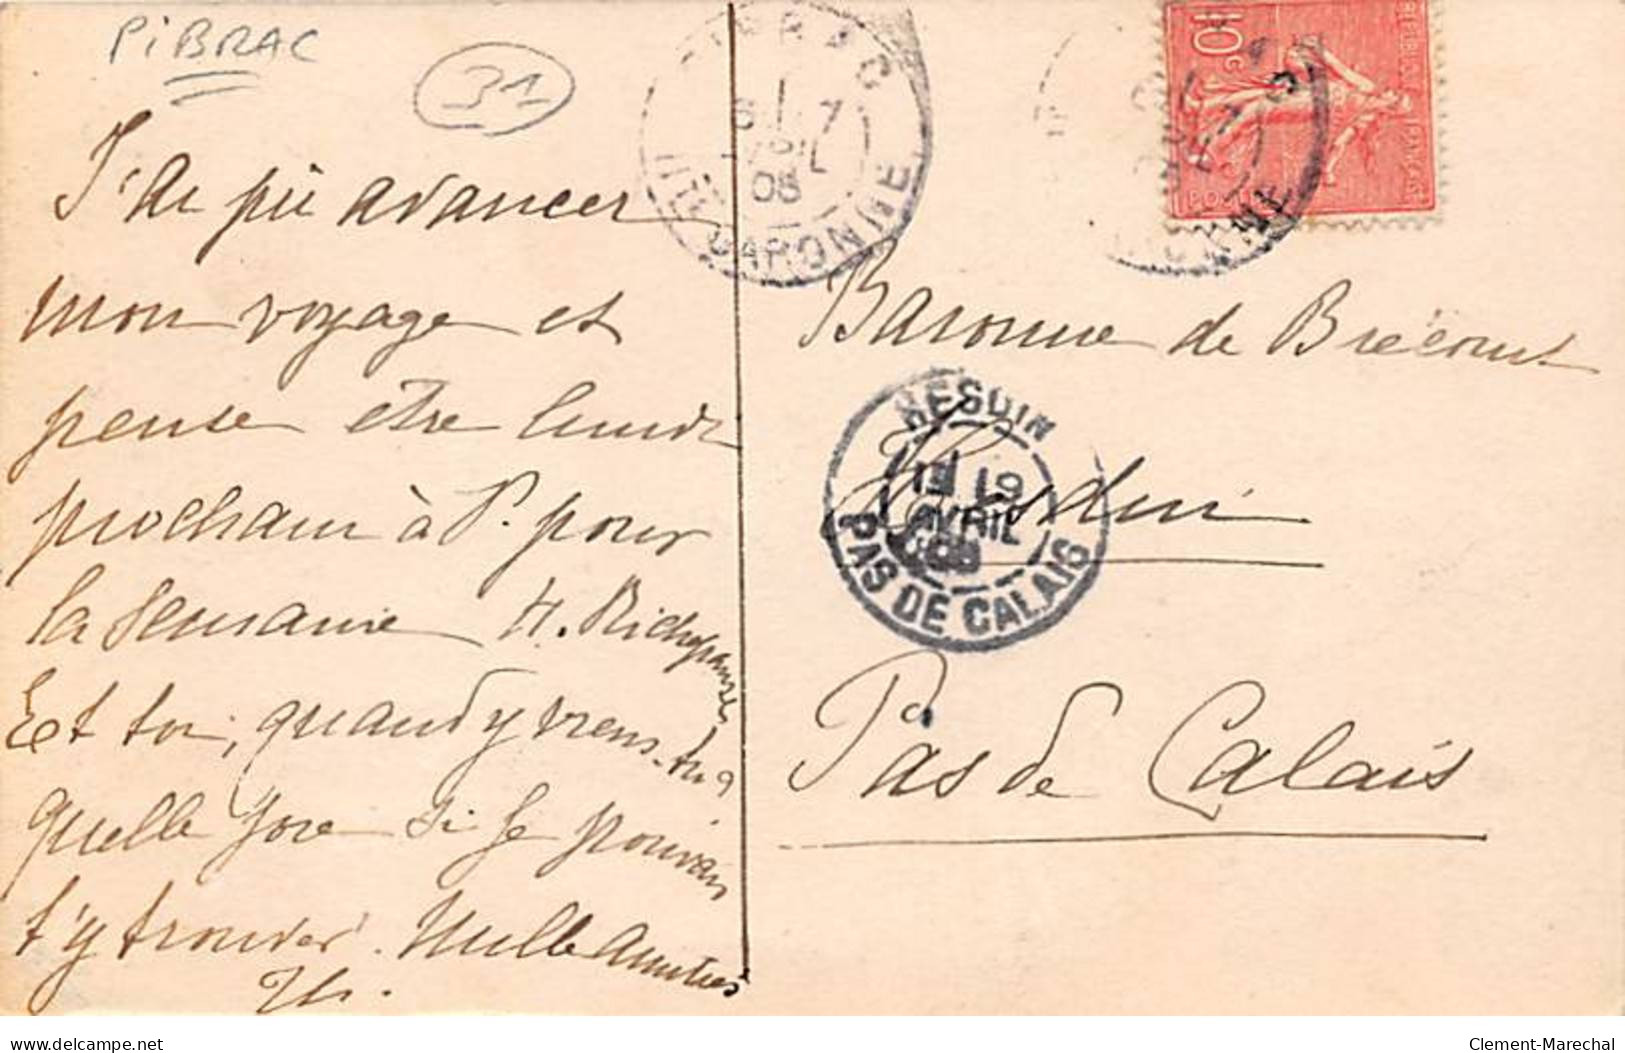 PiBRAC
31
PIBRAC
7
AVRIL
08
HTE GARONNE
10
POSTES
J'ai pu avancer
mon voyage et
pense être lundi
prochain à P. pour
la semaine H. Richepanse
Et toi, quand y viens-tu ?
quelle joie si je pouvais
t'y trouver. Mille amitiés
Th.
Baronne de Brécourt
Hesdin
Pas de Calais
HESDIN
19
AVRIL
08
PAS DE CALAIS
www.delcampe.net
Clement-Marechal